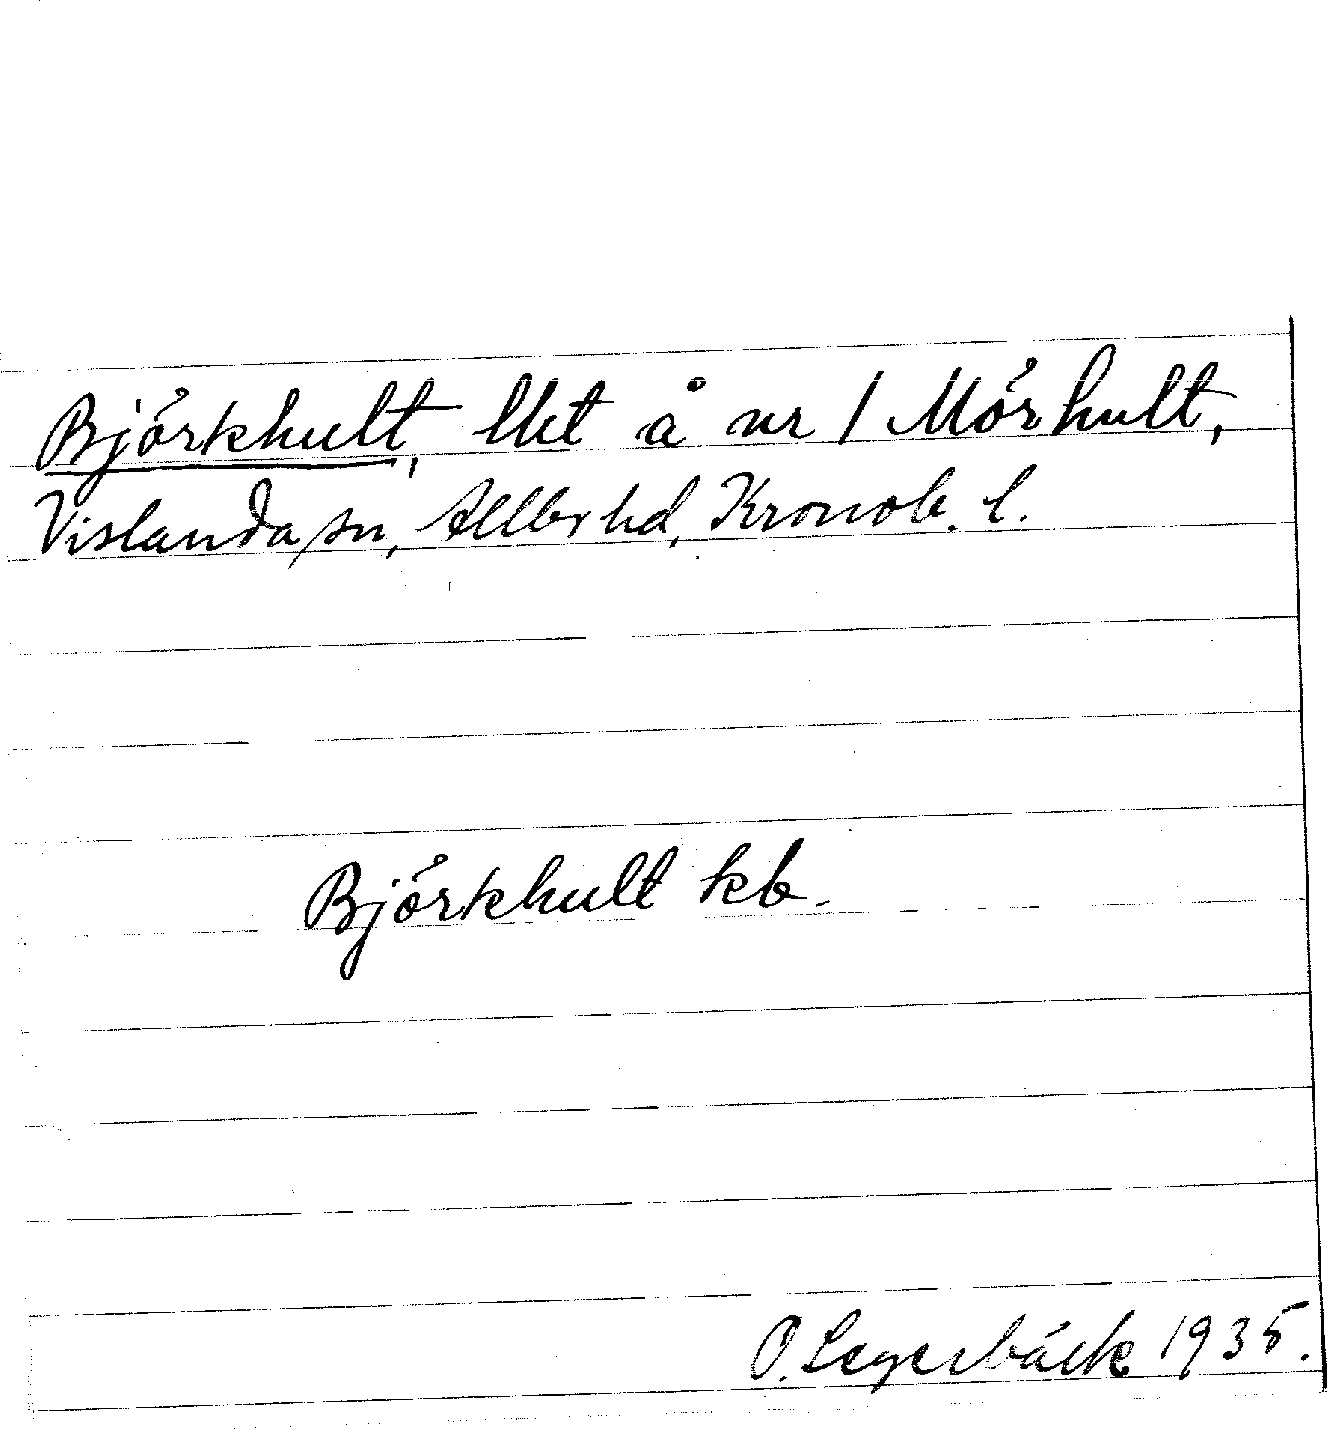 Björkhult, lht å nr 1 Mörhult,
Vislanda sn, Allbo hd, Kronob. l.
Björkhult kb.
O. Legerbäck 1935.